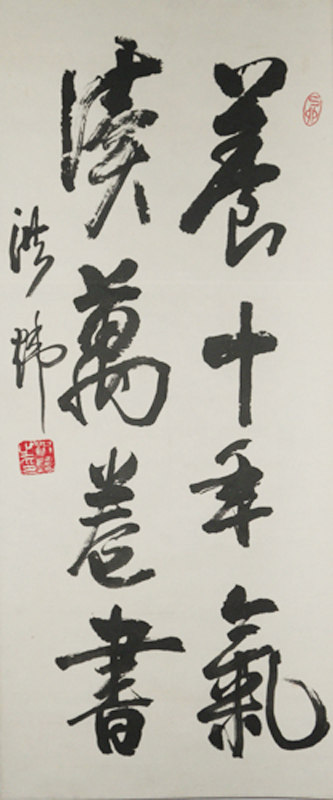 養十年氣
讀萬卷書
洪煒